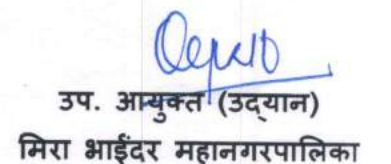 उप. आयुक्त (उद्यान)
मिरा भाईंदर महानगरपालिका